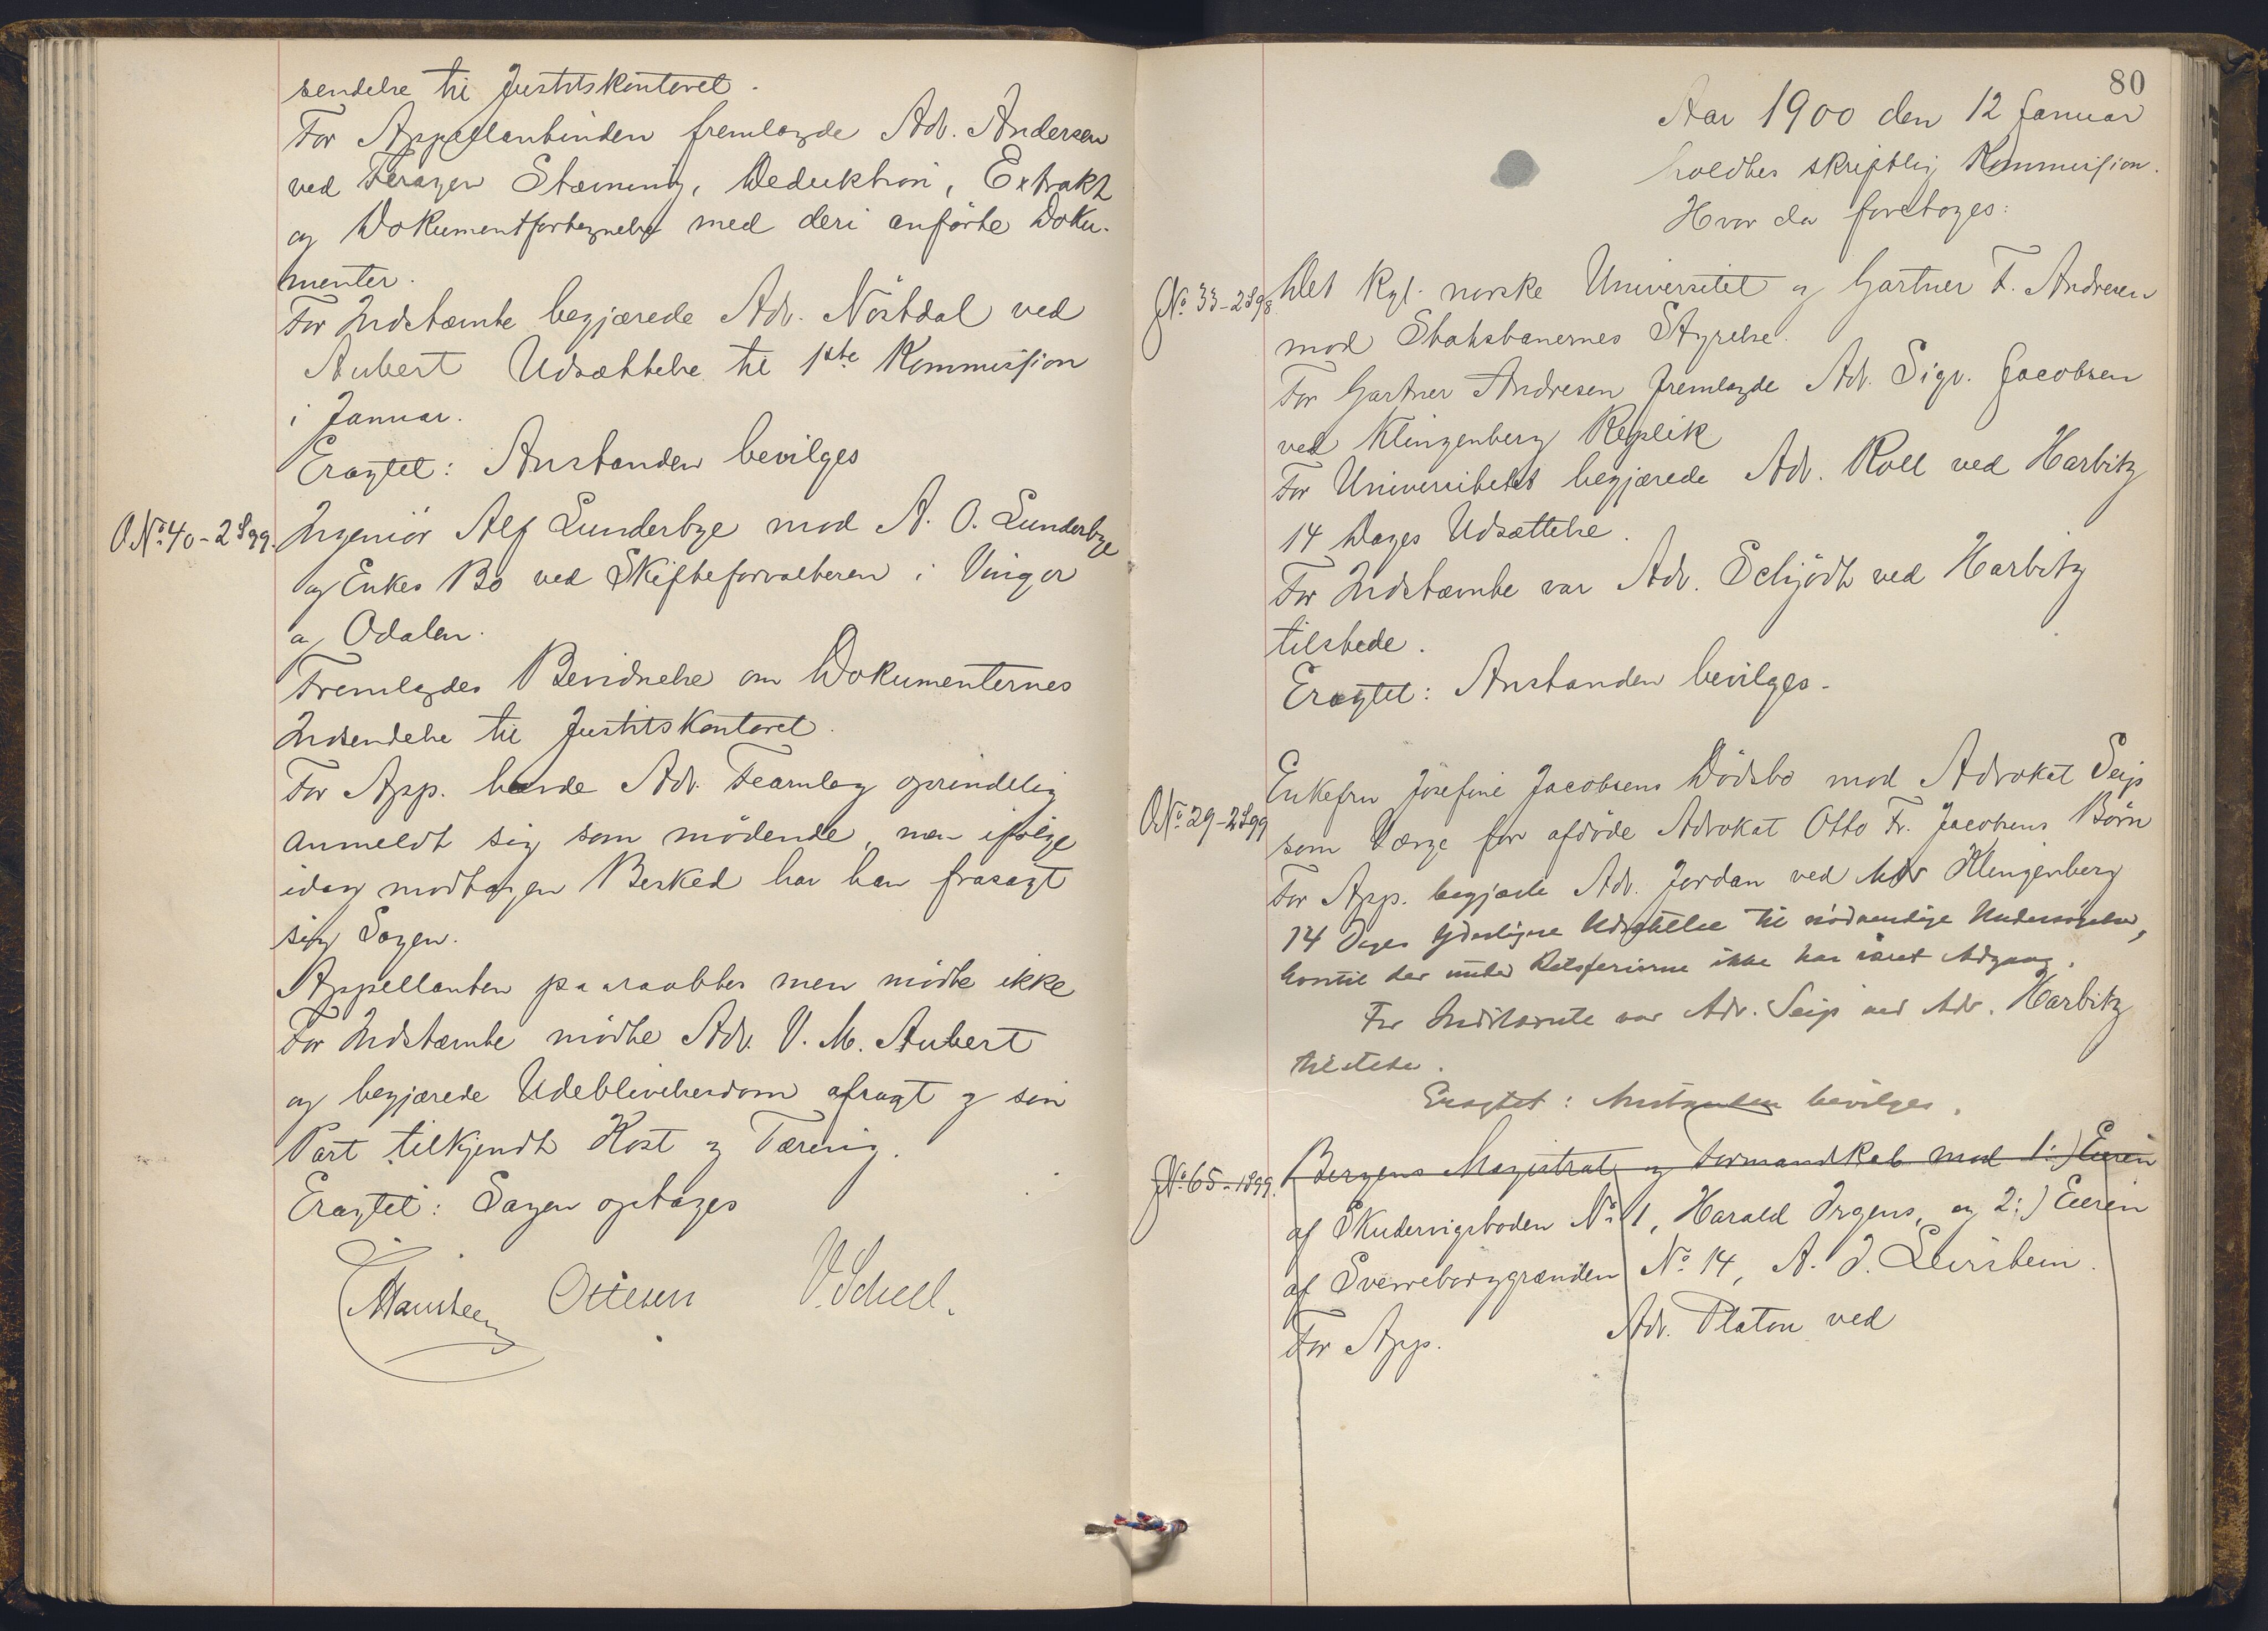 sendelse til Justitskontoret.
For Appellantinden fremlagde Adv. Andersen
ved Stævning, Deduktion, Extrakt
og Dokumentfortegnelse med deri anførte Doku-
menter.
For Indstævnte begjærede Adv. Nöstdal ved
Aubert Udsættelse til 1ste Kommission
i Januar.
Eragtet: Anstanden bevilges
O No 40 - 2S99.
Ingeniör Alf Lunderbye mod A. O. Lunderbye
og Enkes Bo ved Skifteforvalteren i Vinger
og Odalen.
Fremlagdes Bevidnelse om Dokumenternes
Indsendelse til Justitskontoret.
For App. havde Adv. Fearnley oprindelig
anmeldt sig som mödende, men ifölge
idag modtagen Besked har han frasagt
sig Sagen.
Appellanten paaraabtes men mödte ikke
For Indstævnte mödte Adv. V. M. Aubert
og begjærede Udeblivelsesdom afsagt og sin
Part tilkjendt Kost og Tæring.
Eragtet: Sagen optages
Ottesen V. Scheel.
80
Aar 1900 den 12 Januar
holdtes skriftlig Kommission.
Hvor da foretoges:
No 33 - 2S98.
Det kgl. norske Universitet og Gartner F. Andresen
mod Statsbanernes Styrelse.
For Gartner Andresen fremlagde Adv. Sigv. Jacobsen
ved Klingenberg Replik
For Universitetet begjærede Adv. Roll ved Harbitz
14 Dages Udsættelse.
For Indstævnte var Adv. Schjödt ved Harbitz
tilstede.
Eragtet: Anstanden bevilges.
O No 29 - 2S99
Enkefru Josefine Jacobsens Dödsbo mod Advokat Seip
som Værge for afdöde Advokat Otto Fr. Jacobsens Börn
For App. begjærte Adv. Jordan ved Adv Klingenberg
14 Dages yderligere Udsættelse til nödvendige Undersögelser,
hvortil der under Retsferierne ikke har været Adgang.
For Indstævnte var Adv. Seip ved Adv. Harbitz
tilstede.
Eragtet: Anstanden bevilges.
No 65 - 1899.
Bergens Magistrat og Formandskab mod 1:) Eieren
af Skudervigsboden No 1, Harald Irgens, og 2:) Eieren
af Sverreborggrænden No 14, A. J. Levinstein.
For App. Adv. Platou ved